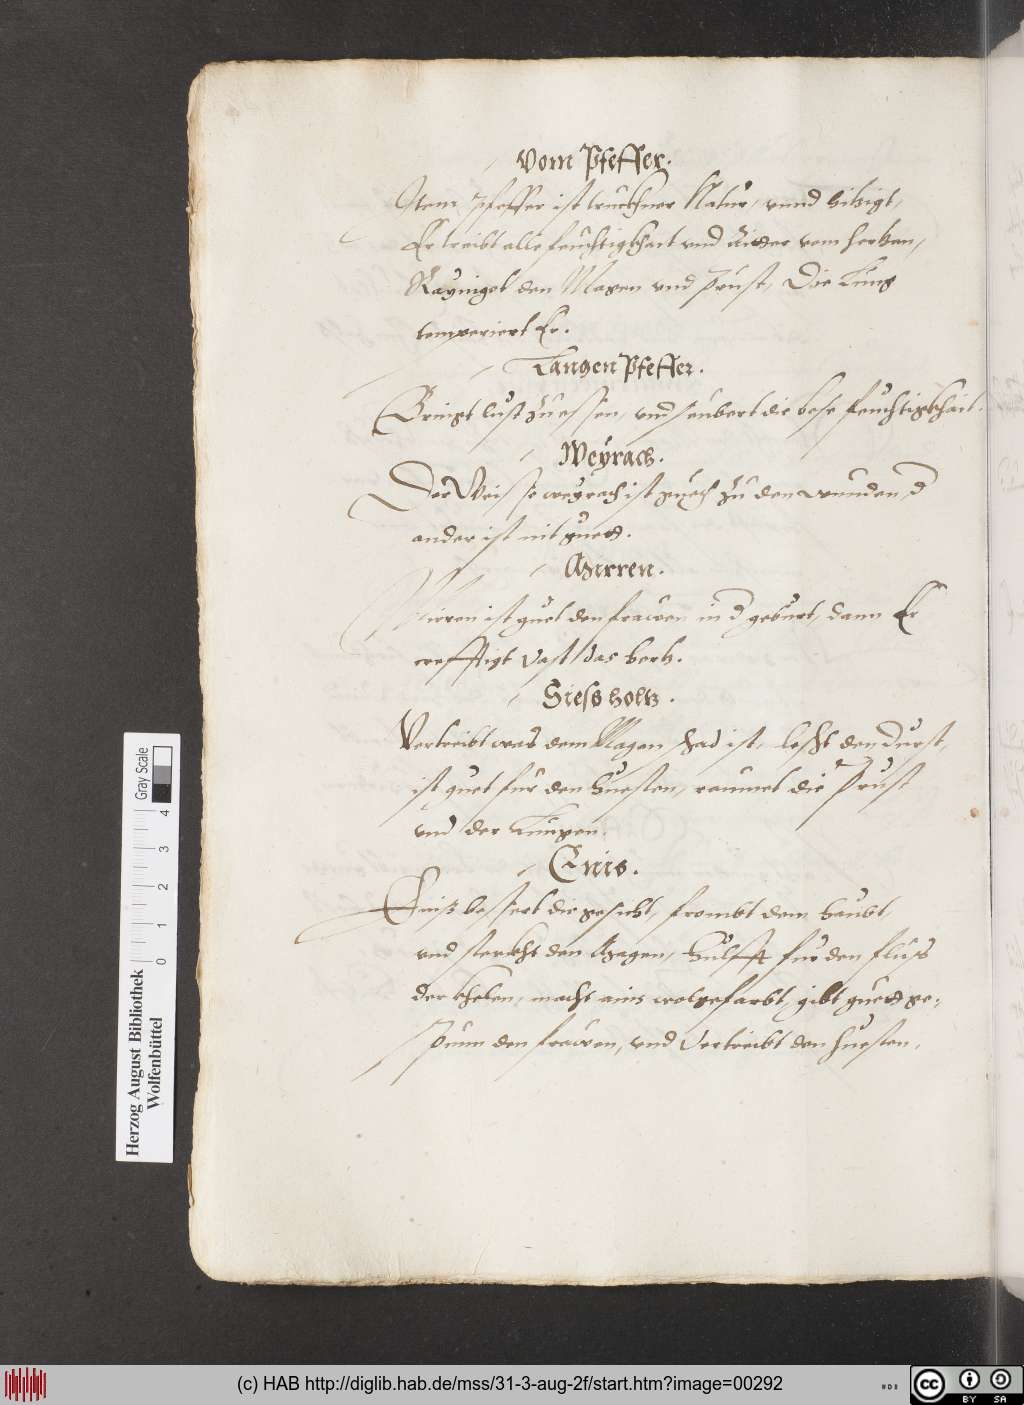 Vom Pfeffer.
Item Pfeffer ist truckhner Natur, vnnd hitzigt,
Er treibt alle feuchtigkhait vnd Aitter vom hertzen,
Rayniget den Magen vnd Prust, Die Lung
temperiert Er.
Langen Pfeffer.
Bringt lust zu essen, vnd seubert die bese feuchtigkhait.
Weyrach.
Der Weisse weyrach ist guet zu den wunden, d
ander ist nit guet.
Mirren.
Mirren ist guet den frawen in d geburt, dann Er
crefftigt vast das hertz.
Siessholtz.
Vertreibt was dem Magen schad ist, lescht den durst,
ist guet fur den huesten, raumet die Prust
vnd der Lungen.
Enis.
Eniß bessert die gesicht, frombt dem haubt,
vnd sterckht den Magen, hulfft fur den fluss
der khelen, macht ains wolgefarbt, gibt guet ge-
spunn den frawen, vnd Vertreibt den huesten.
Herzog August Bibliothek
Wolfenbüttel
0 1 2 3 4
Gray Scale
(c) HAB http://diglib.hab.de/mss/31-3-aug-2f/start.htm?image=00292
cc BY SA